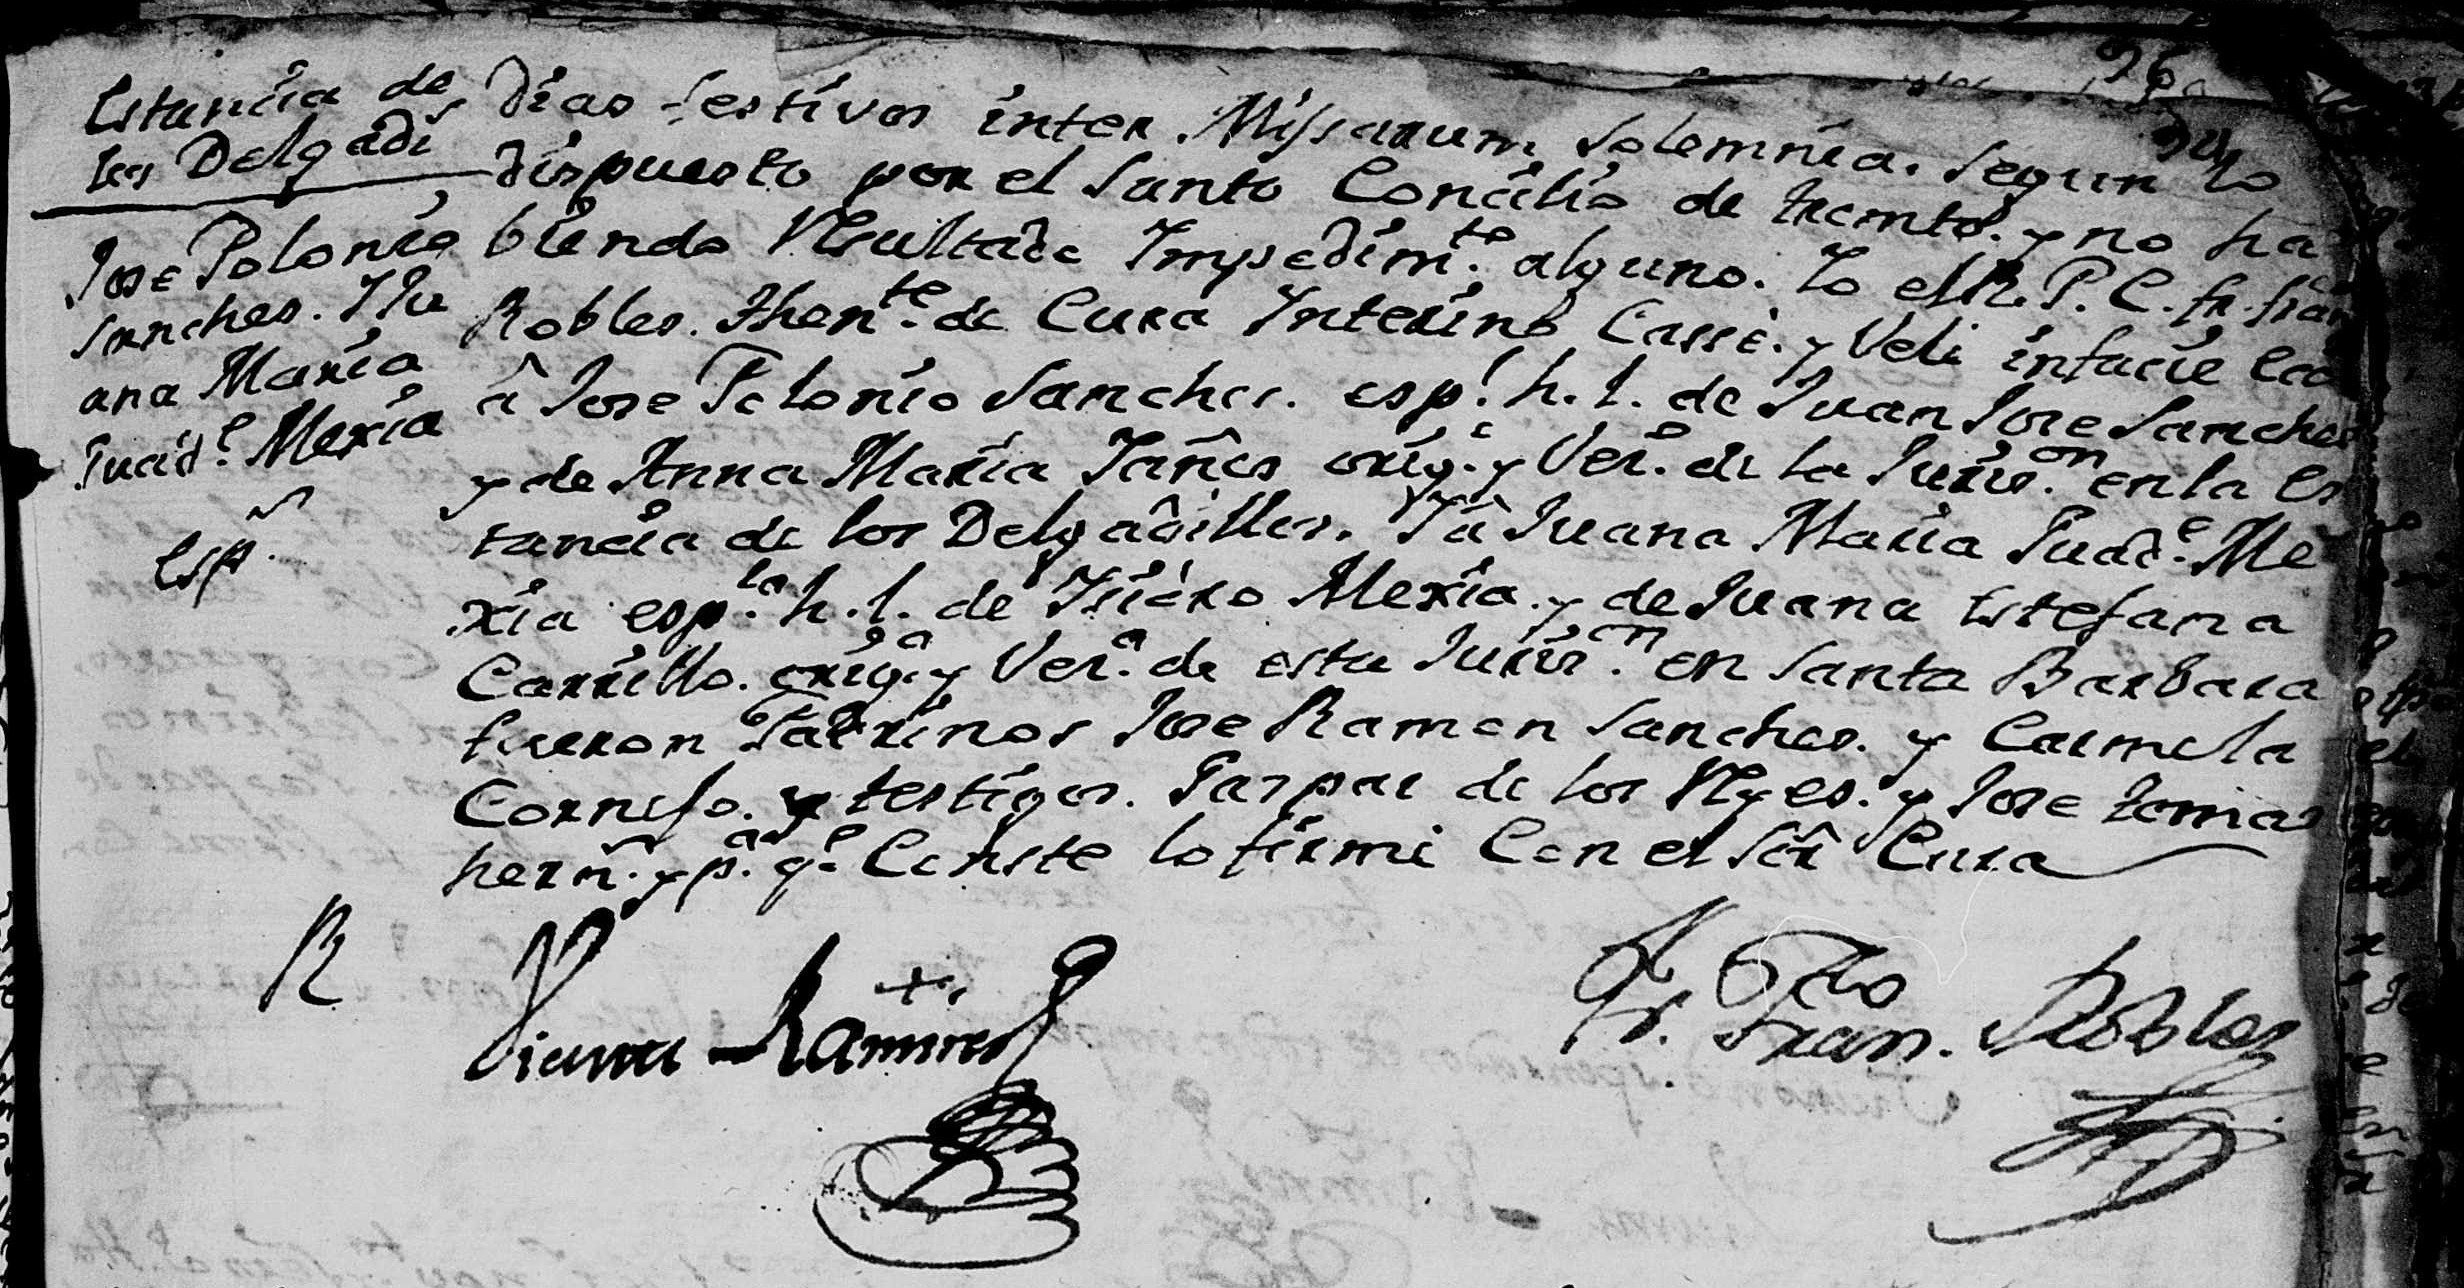 96
Estancia de
los Delgadi
Jose Polonio
Sanches. Y Ju
ana Maria
Guad.e Mexia
esp.
dias festivos inter Missarum Solemnia. Segun lo
dispuesto por el Santo Concilio de trento. y no ha
biendo Resultado Impedim.to alguno. Yo el R. P. C. fr. fran
Robles. Thente. de Cura Interino Cassé. y Velé infacie Ecc
â Jose Polonio Sanches. esp.l h. l. de Juan Jose Sanches
y de Anna Maria Yañes orig.s y Vec.o de la Juris.on en la Es
tancia de los Delgadillos. Y â Juana Maria Guad.e Me
xia esp.la h. l. de Ysidro Mexia. y de Juana Estefana
Carrillo. orig.a y Vec.a de esta Juris.on en Santa Barbara
fueron Padrinos Jose Ramon Sanches. y Carmela
Cornejo. y testigos. Gaspar de los Reyes. y Jose tomas
hern. y p.a q.e Conste lo firmé Con el Sôr Cura
R
Vicente Ramires
Fr. Fran.co Robles